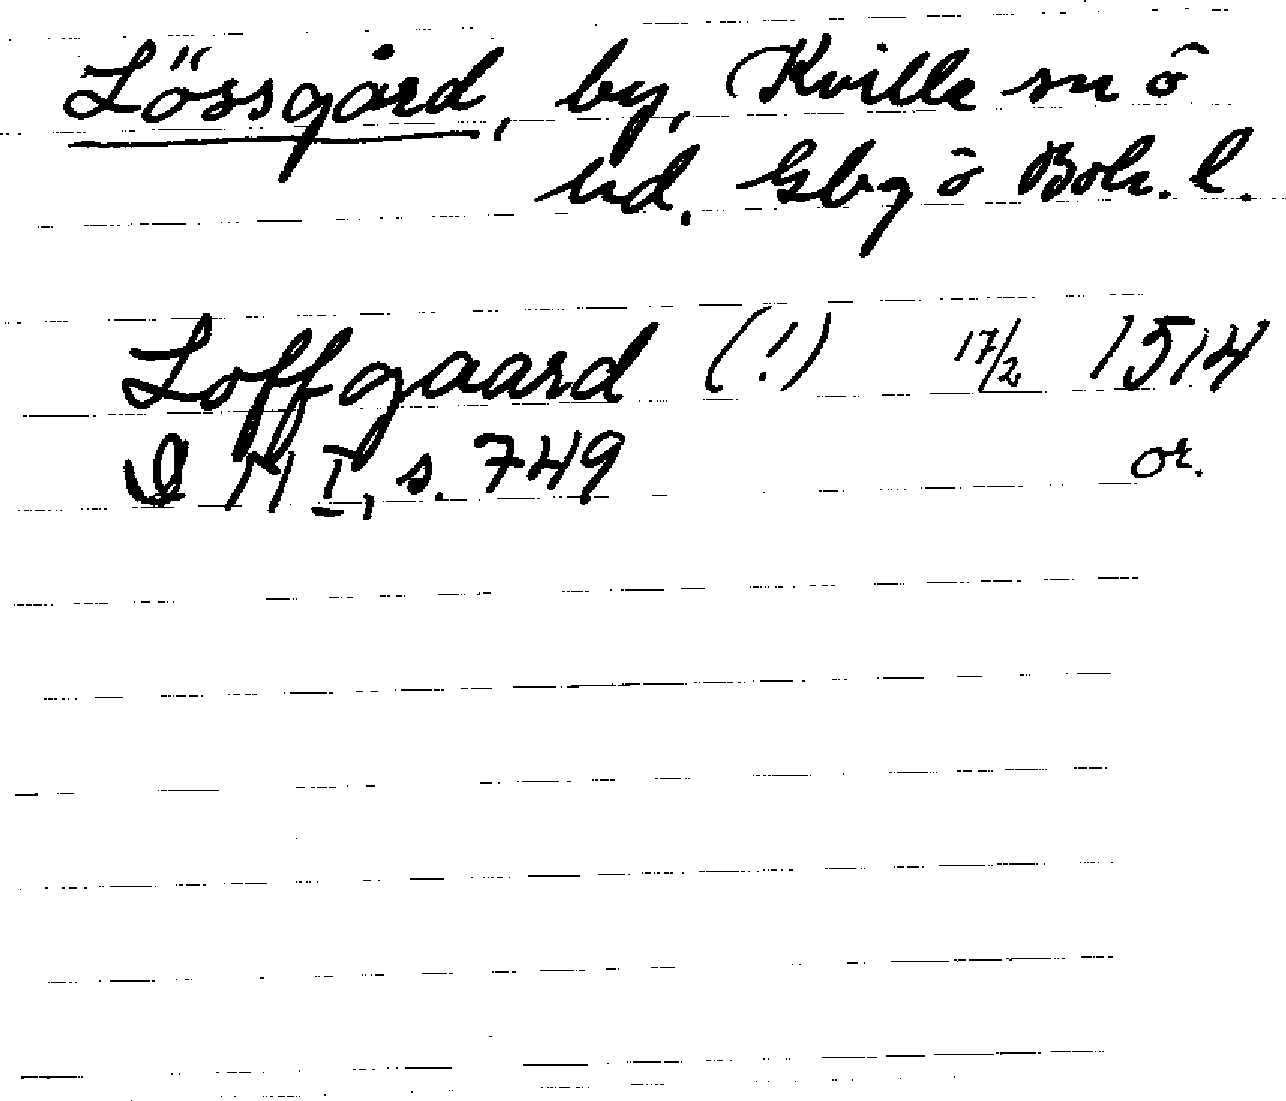 Lössgård, by, Kville sn o
hd. Gbg o Boh. l.
Loffgaard (!) 17/2 1514
D N I, s. 749 or.